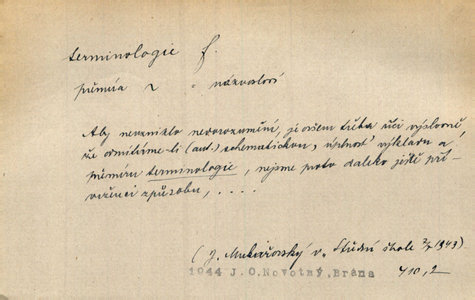 terminologie f.
přemíra ~ „ názvosloví
Aby nevzniklo nedorozumění, je ovšem třeba říci výslovně
že odmítáme-li (aut.) schematickou, úplnost výkladu a
přemíru terminologie, nejsme proto daleko ještě při-
vrženci způsobu, ....
(J. Mukařovský v „Střední škole 1943)
1944 J.O.Novotný, Brána 410,2